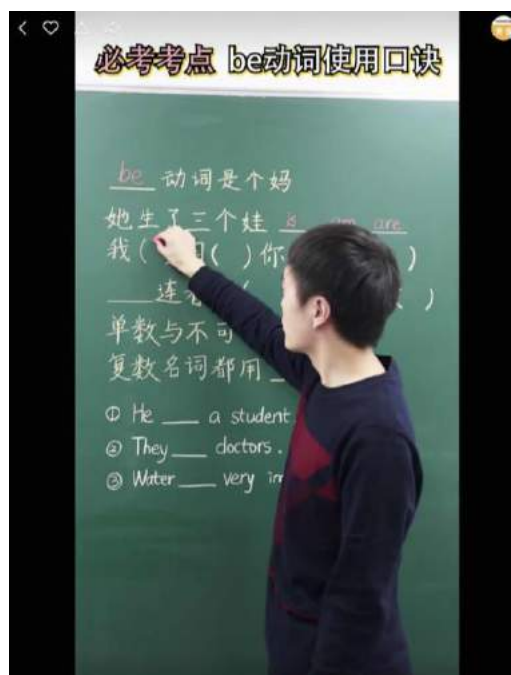 必考考点 be动词使用口诀
be 动词是个妈
她生了三个娃 is am are
我( 用( )你 )
___连着 ( )
单数与不可
复数名词都用 _
① He ___ a student
② They ___ doctors.
③ Water ___ very im